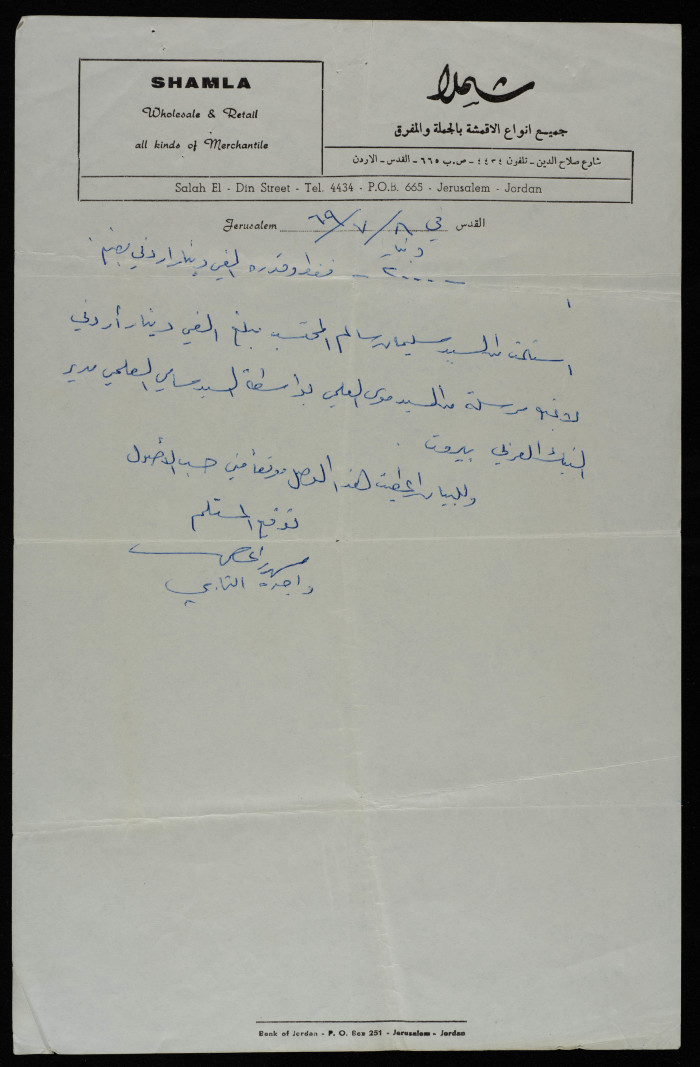 SHAMLA
Wholesale & Retail
all kinds of Merchantile
شملا
جميع انواع الاقمشة بالجملة والمفرق
شارع صلاح الدين - تلفون ٤٤٣٤ - ص.ب ٦٦٥ - القدس - الاردن
Salah El - Din Street - Tel. 4434 - P.O.B. 665 - Jerusalem - Jordan
القدس في ٢٨/٧/٦٩ Jerusalem
دينار
- ٢٠٠٠ - فقط وقدره الفي دينار اردني
استلمت من السيد سليمان سالم المحتسب مبلغ الفي دينار أردني
مرسلة من السيد موسى العلمي بواسطة السيد سامي العلمي مدير
البنك العربي بيروت .
وللبيان اعطيت هذا الوصل موقعا مني حسب الأصول
توقيع المستلم
Bank of Jordan - P. O. Box 251 - Jerusalem - Jordan